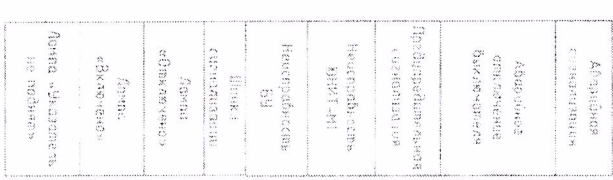 Лампа «Указатель
не поднят»
Лампа
«Включено»
Лампа
«Отключено»
Шинки
сигнализации
Неисправность
БУ
Неисправность
Предупредительная
сигнализация
Аварийное
отключение
выключателя
Аварийная
сигнализация